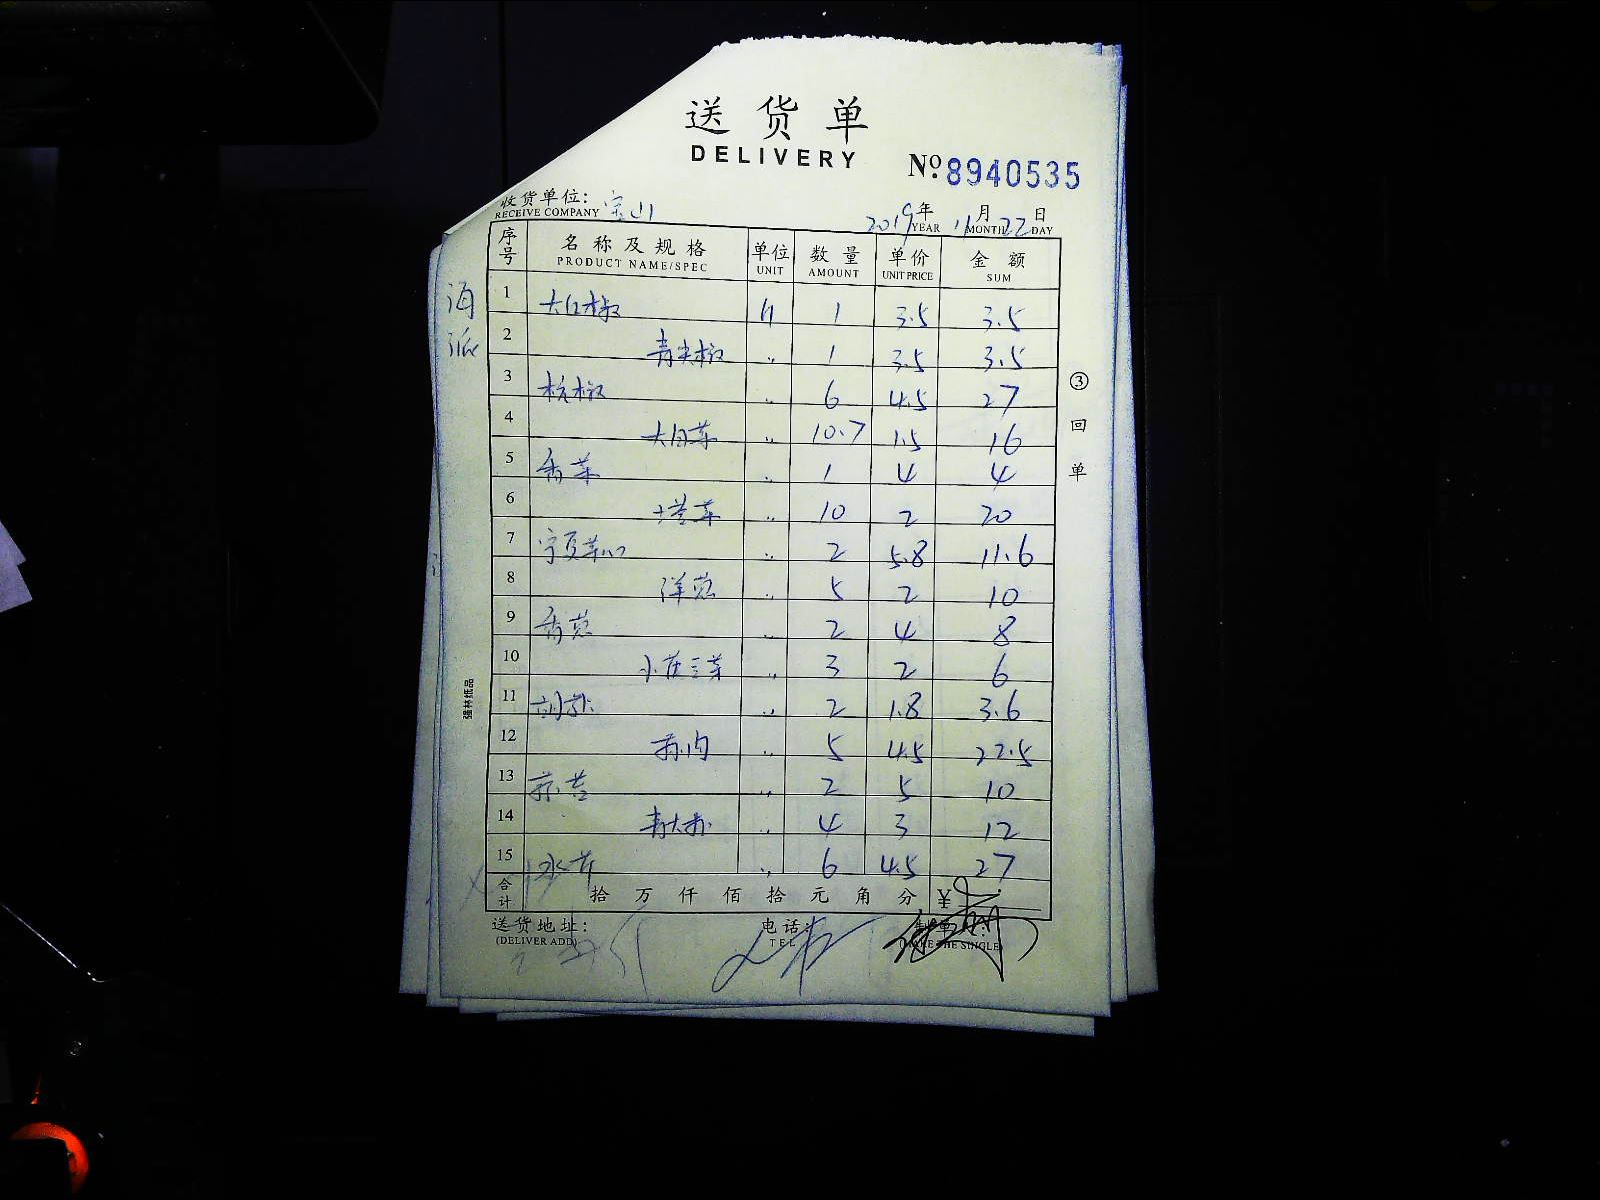 送货单
DELIVERY
No:8940535
收货单位: 宝山
RECEIVE COMPANY
2019年 11月 22日
YEAR MONTH DAY
序号 名称及规格 单位 数量 单价 金额
PRODUCT NAME/SPEC UNIT AMOUNT UNIT PRICE SUM
海派
1 大红椒 斤 1 3.5 3.5
2 青尖椒 〃 1 3.5 3.5
3 杭椒 〃 6 4.5 27
4 大白菜 〃 10.7 1.5 16
5 香菜 〃 1 4 4
6 塔菜 〃 10 2 20
7 宁夏菜心 〃 2 5.8 11.6
8 洋葱 〃 5 2 10
9 香葱 〃 2 4 8
10 小唐菜 〃 3 2 6
11 〃 2 1.8 3.6
12 〃 5 4.5 22.5
13 〃 2 5 10
14 青大 〃 4 3 12
15 水芹 〃 6 4.5 27
合计 拾 万 仟 佰 拾 元 角 分 ¥
送货地址:
(DELIVER ADD)
电话:
TEL
制单
(MAKE THE SINGLE)
③回单
强林纸品